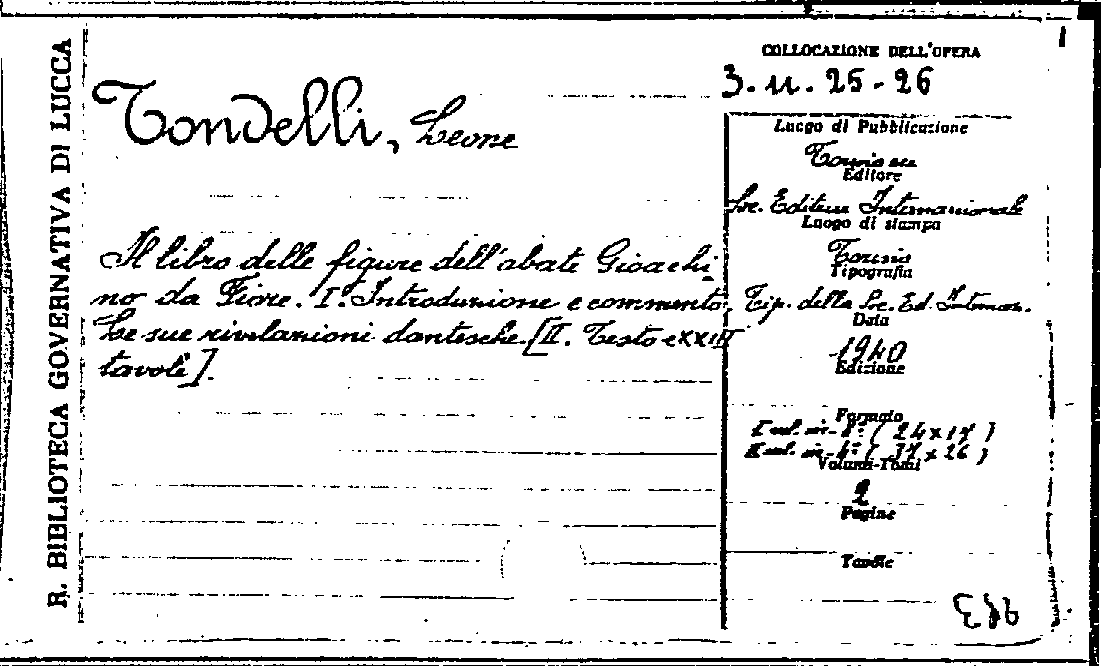 R. BIBLIOTECA GOVERNATIVA DI LUCCA
Tondelli, Leone
Il libro delle figure dell'abate Gioachi-
no da Fiore. I. Introduzione e commento.
Le sue rivelazioni dantesche. [II. Testo e XXIII
tavole].
COLLOCAZIONE DELL'OPERA
3. u. 25-26
Luogo di Pubblicazione
Torino
Editore
Soc. Editrice Internazionale
Luogo di stampa
Torino
Tipografia
Tip. della Soc. Ed. Internaz.
Data
1940
Edizione
Formato
I vol. in-8º (24x17)
II vol. in-4º (37x26)
Volumi-Tomi
2
Pagine
Tavole